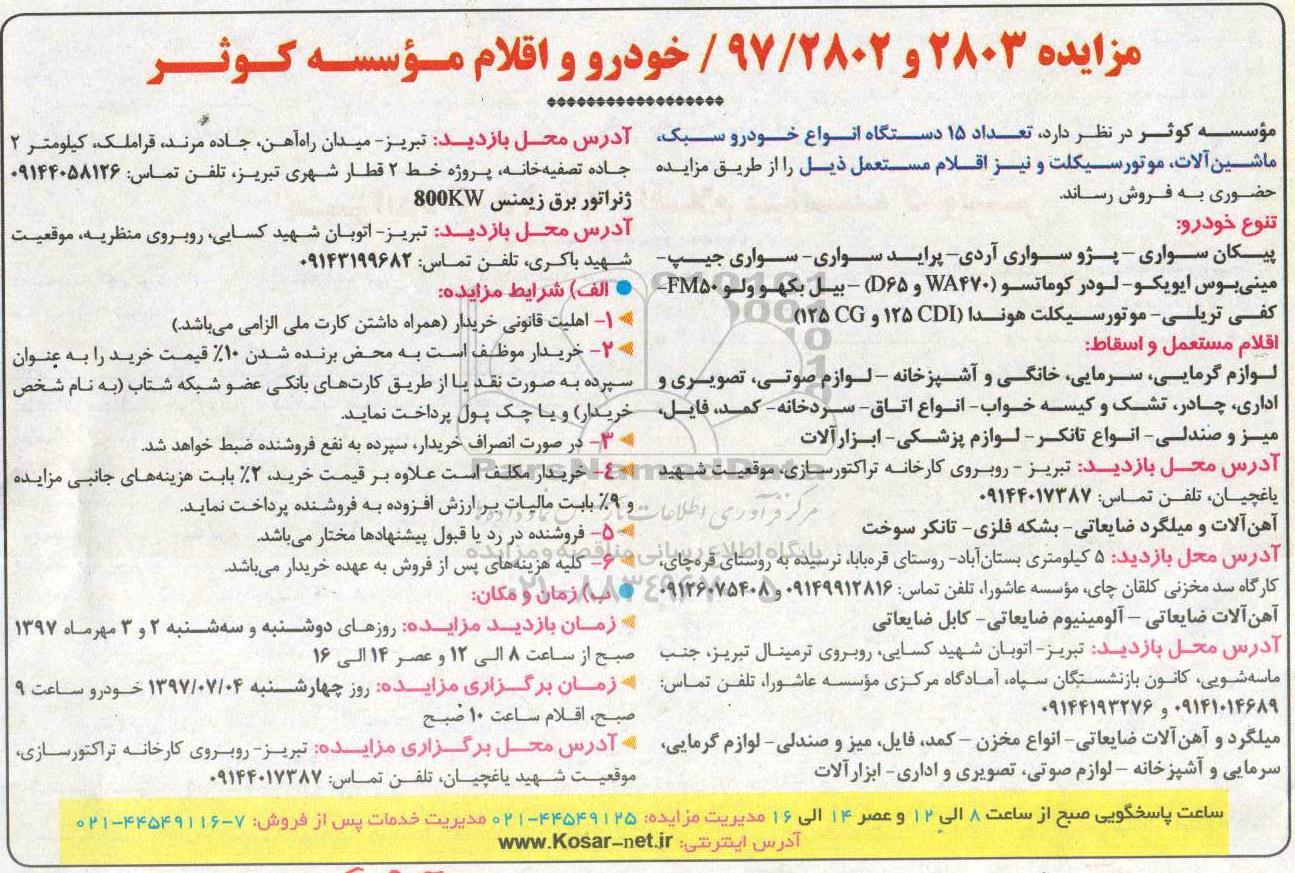 مزایده ۲۸۰۳ و ۹۷/۲۸۰۲ / خودرو و اقلام مؤسسه کوثر
مؤسسه کوثر در نظر دارد، تعداد ۱۵ دستگاه انواع خودرو سبک،
ماشین‌آلات، موتورسیکلت و نیز اقلام مستعمل ذیل را از طریق مزایده
حضوری به فروش رساند.
تنوع خودرو:
پیکان سواری – پژو سواری آردی- پراید سواری- سواری جیپ-
مینی‌بوس ایویکو- لودر کوماتسو (WA۴۷۰ و D۶۵) – بیل بکهو ولوو FM۵۰-
کفی تریلی- موتورسیکلت هوندا (CDI ۱۲۵ و CG ۱۲۵)
اقلام مستعمل و اسقاط:
لوازم گرمایی، سرمایی، خانگی و آشپزخانه – لوازم صوتی، تصویری و
اداری، چادر، تشک و کیسه خواب- انواع اتاق- سردخانه- کمد، فایل،
میز و صندلی- انواع تانکر- لوازم پزشکی- ابزارآلات
آدرس محل بازدید: تبریز - روبروی کارخانه تراکتورسازی، موقعیت شهید
یاغچیان، تلفن تماس: ۰۹۱۴۴۰۱۷۳۸۷
آهن‌آلات و میلگرد ضایعاتی- بشکه فلزی- تانکر سوخت
آدرس محل بازدید: ۵ کیلومتری بستان‌آباد- روستای قره‌بابا، نرسیده به روستای قره‌چای،
کارگاه سد مخزنی کلقان چای، مؤسسه عاشورا، تلفن تماس: ۰۹۱۴۹۹۱۲۸۱۶ و ۰۹۱۲۶۰۷۵۴۰۸
آهن‌آلات ضایعاتی – آلومینیوم ضایعاتی- کابل ضایعاتی
آدرس محل بازدید: تبریز- اتوبان شهید کسایی، روبروی ترمینال تبریز، جنب
ماسه‌شویی، کانون بازنشستگان سپاه، آمادگاه مرکزی مؤسسه عاشورا، تلفن تماس:
۰۹۱۴۱۰۱۴۶۸۹ و ۰۹۱۴۴۱۹۳۲۷۶
میلگرد و آهن‌آلات ضایعاتی- انواع مخزن – کمد، فایل، میز و صندلی- لوازم گرمایی،
سرمایی و آشپزخانه – لوازم صوتی، تصویری و اداری- ابزارآلات
آدرس محل بازدید: تبریز- میدان راه‌آهن، جاده مرند، قراملک، کیلومتر ۲
جاده تصفیه‌خانه، پروژه خط ۲ قطار شهری تبریز، تلفن تماس: ۰۹۱۴۴۰۵۸۱۲۶
ژنراتور برق زیمنس 800KW
آدرس محل بازدید: تبریز- اتوبان شهید کسایی، روبروی منظریه، موقعیت
شهید باکری، تلفن تماس: ۰۹۱۴۳۱۹۹۶۸۲
الف) شرایط مزایده:
۱- اهلیت قانونی خریدار (همراه داشتن کارت ملی الزامی می‌باشد.)
۲- خریدار موظف است به محض برنده شدن ۱۰٪ قیمت خرید را به عنوان
سپرده به صورت نقد یا از طریق کارت‌های بانکی عضو شبکه شتاب (به نام شخص
خریدار) و یا چک پول پرداخت نماید.
۳- در صورت انصراف خریدار، سپرده به نفع فروشنده ضبط خواهد شد.
۴- خریدار مکلف است علاوه بر قیمت خرید، ۲٪ بابت هزینه‌های جانبی مزایده
و ۹٪ بابت مالیات بر ارزش افزوده به فروشنده پرداخت نماید.
۵- فروشنده در رد یا قبول پیشنهادها مختار می‌باشد.
۶- کلیه هزینه‌های پس از فروش به عهده خریدار می‌باشد.
ب) زمان و مکان:
زمان بازدید مزایده: روزهای دوشنبه و سه‌شنبه ۲ و ۳ مهرماه ۱۳۹۷
صبح از ساعت ۸ الی ۱۲ و عصر ۱۴ الی ۱۶
زمان برگزاری مزایده: روز چهارشنبه ۱۳۹۷/۰۷/۰۴ خودرو ساعت ۹
صبح، اقلام ساعت ۱۰ صبح
آدرس محل برگزاری مزایده: تبریز- روبروی کارخانه تراکتورسازی،
موقعیت شهید یاغچیان، تلفن تماس: ۰۹۱۴۴۰۱۷۳۸۷
ساعت پاسخگویی صبح از ساعت ۸ الی ۱۲ و عصر ۱۴ الی ۱۶ مدیریت مزایده: ۰۲۱-۴۴۵۴۹۱۲۵ مدیریت خدمات پس از فروش: ۷-۰۲۱-۴۴۵۴۹۱۱۶
آدرس اینترنتی: www.Kosar-net.ir
ParsNamadData
پایگاه اطلاع رسانی مناقصه و مزایده